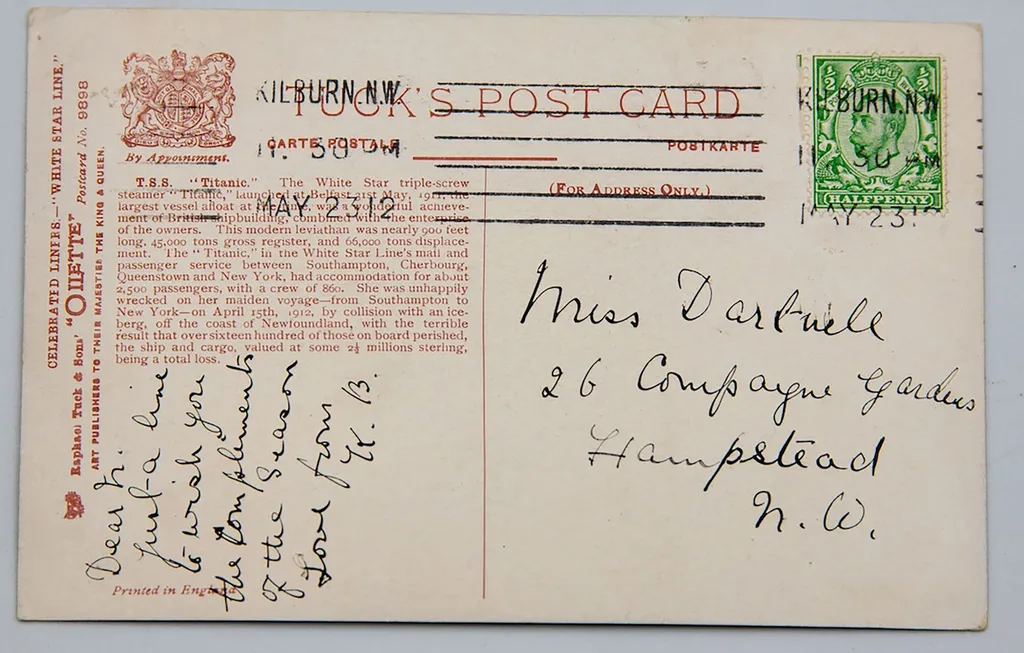 CELEBRATED LINERS.—"WHITE STAR LINE."
Raphael Tuck & Sons' "OILETTE" Postcard No. 9898
ART PUBLISHERS TO THEIR MAJESTIES THE KING & QUEEN.
By Appointment.
TUCK'S POST CARD
CARTE POSTALE
POSTKARTE
(FOR ADDRESS ONLY.)
T.S.S. "Titanic." The White Star triple-screw
steamer "Titanic," launched at Belfast 31st May, 1911, the
largest vessel afloat at the time, was a wonderful achieve-
ment of British shipbuilding, combined with the enterprise
of the owners. This modern leviathan was nearly 900 feet
long, 45,000 tons gross register, and 66,000 tons displace-
ment. The "Titanic," in the White Star Line's mail and
passenger service between Southampton, Cherbourg,
Queenstown and New York, had accommodation for about
2,500 passengers, with a crew of 860. She was unhappily
wrecked on her maiden voyage—from Southampton to
New York—on April 15th, 1912, by collision with an ice-
berg, off the coast of Newfoundland, with the terrible
result that over sixteen hundred of those on board perished,
the ship and cargo, valued at some 2½ millions sterling,
being a total loss.
KILBURN.N.W.
11. 30 PM
MAY 23 12
½ ½
HALFPENNY
KILBURN.N.W
11 30 PM
MAY 23 12
Dear
Just a line
to wish you
the Compliments
of the Season
Love from
K. B.
Miss Dartnell
26 Compayne Gardens
Hampstead
N. W.
Printed in England